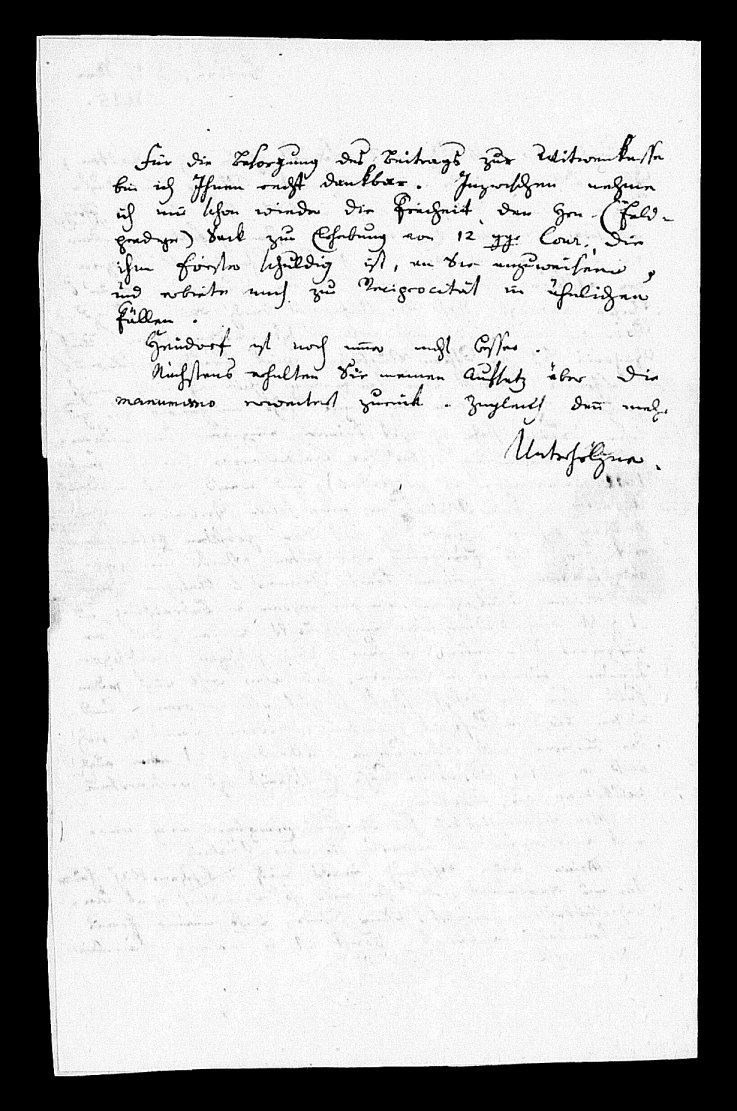 Für die Besorgung des Beitrags zur Witwenkasse
bin ich Ihnen recht dankbar. Inzwischen nehme
ich mir schon wieder die Freiheit, den Hrn. (Feld-
prediger) Sack zur Erhebung von 12 ggr. Cour., die
ihm Förster schuldig ist, an Sie anzuweisen,
und erbiete mich zu Reciprocität in ähnlichen
Fällen.
Heindorf ist noch immer nicht besser.
Nächstens erhalten Sie meinen Aufsatz über die
erweitert zurück. Zugleich dann mehr.
Unterholzner.